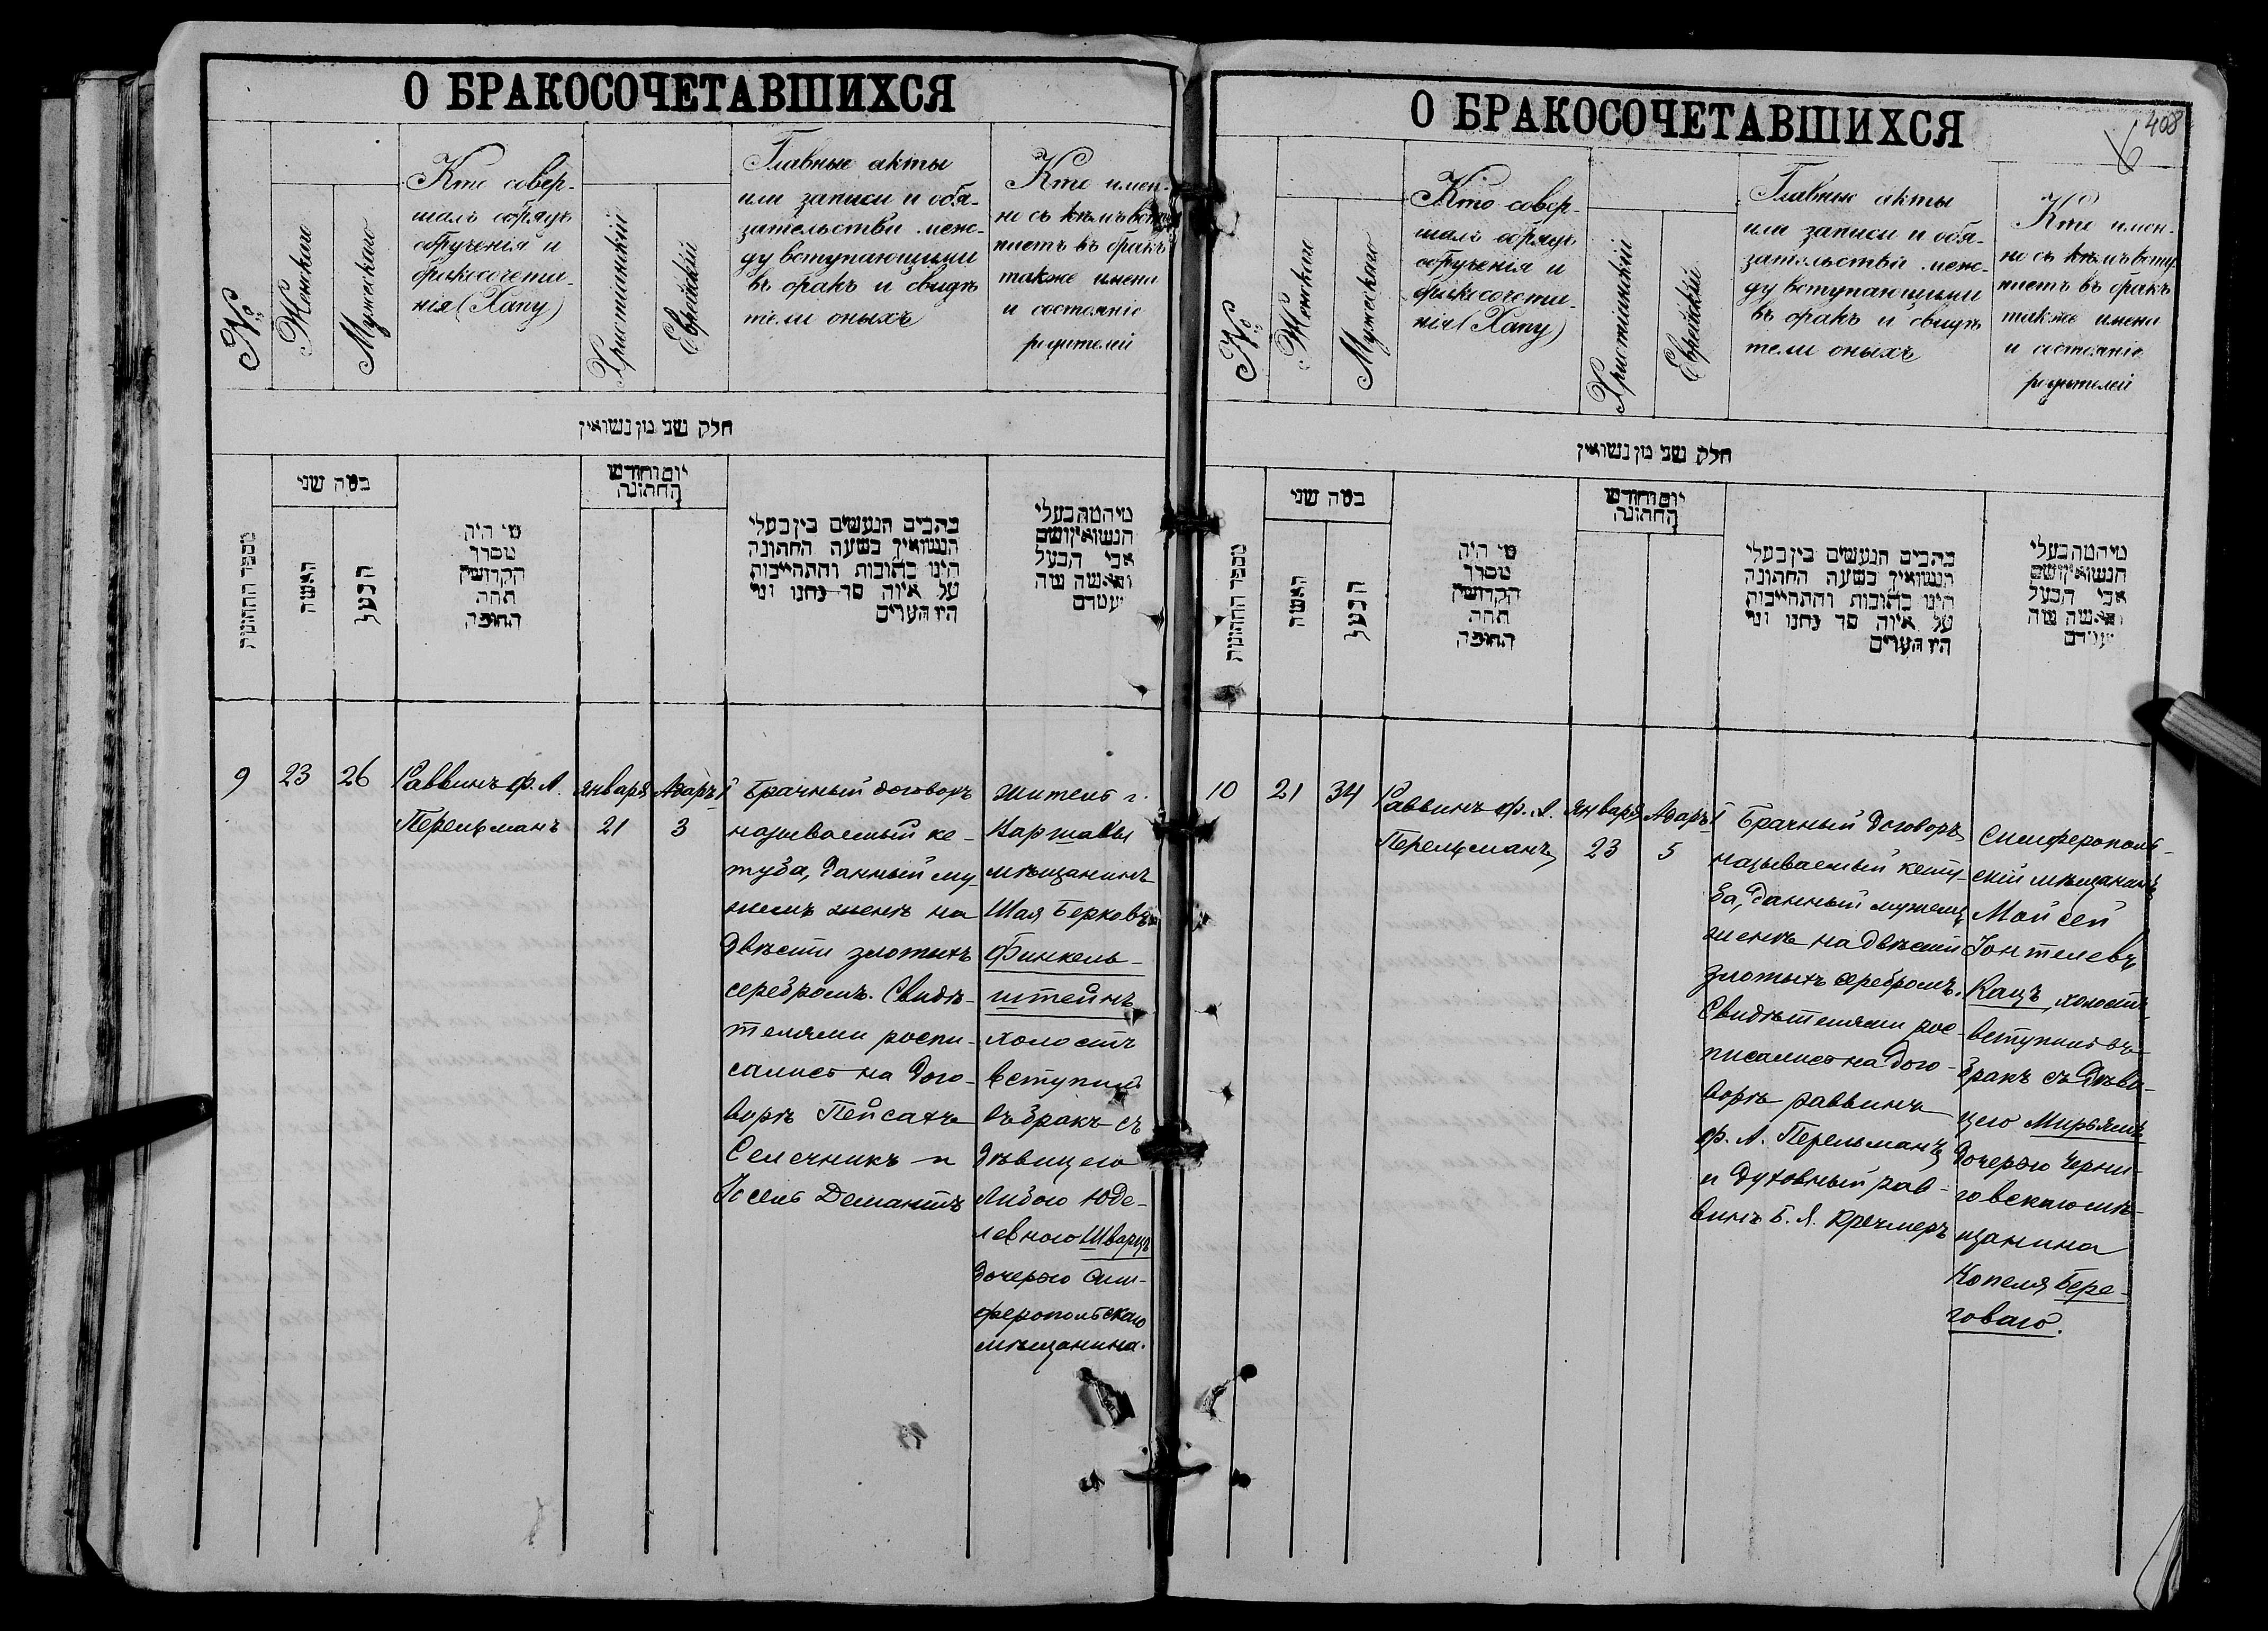 О БРАКОСОЧЕТАВШИХСЯ
№
Женскаго
Мужескаго
Кто совер-
шалъ обрядъ
обрученія и
бракосочета-
нія (Хапу)
Христіанскій
Еврейскій
Главные акты
или записи и обя-
зательства меж-
ду вступающими
въ бракъ и свидѣ
тели оныхъ
Кто имен-
но съ кѣмъ всту
паетъ въ бракъ
также имена
и состояніе
родителей
חלק שני מן נשואין
מספר החתונות
במה שני
האשה
הבעל
מי היה
מסדר
הקדושין
תחת
החופה
יום וחודש
החתונה
כתבים הנעשים בין בעלי
הנשואין בשעה החתונה
הינו כתובות והתחייבות
על איזה סך נתנו ומי
היו העדים
מיהמה בעלי
הנשואין ושם
אבי הבעל
והאשה מה
מעמדם
9
23
26
Раввинъ ф. А.
Перельманъ
Января
21
Адаръ I
3
Брачный договоръ
называемый ке-
туба, данный му-
жемъ женѣ на
двѣсти злотыхъ
серебромъ. Свидѣ-
телями распи-
сались на дого-
ворѣ Пейсахъ
Селечникъ и
Іосель Демантъ
Житель г.
Варшавы
мѣщанинъ
Шая Берковъ
Финкель-
штейнъ
холостъ
вступилъ
въ бракъ съ
дѣвицею
Либою Юде-
левною Шварцъ
дочерью Сим-
феропольскаго
мѣщанина.
О БРАКОСОЧЕТАВШИХСЯ
408
6
№
Женскаго
Мужескаго
Кто совер-
шалъ обрядъ
обрученія и
бракосочета-
нія (Хапу)
Христіанскій
Еврейскій
Главные акты
или записи и обя-
зательства меж-
ду вступающими
въ бракъ и свидѣ
тели оныхъ
Кто имен-
но съ кѣмъ всту
паетъ въ бракъ
также имена
и состояніе
родителей
חלק שני מן נשואין
מספר החתונות
במה שני
האשה
הבעל
מי היה
מסדר
הקדושין
תחת
החופה
יום וחודש
החתונה
כתבים הנעשים בין בעלי
הנשואין בשעה החתונה
הינו כתובות והתחייבות
על איזה סך נתנו ומי
היו העדים
מיהמה בעלי
הנשואין ושם
אבי הבעל
והאשה מה
מעמדם
10
21
34
Раввинъ ф. А.
Перельманъ
Января
23
Адаръ I
5
Брачный договоръ
называемый кету-
ба, данный мужемъ
женѣ на двѣсти
злотыхъ серебромъ.
Свидѣтелями рос-
писались на дого-
ворѣ раввинъ
ф. А. Перельманъ
и духовный рав-
винъ Б. Я. Кречмеръ
Симферополь-
скій мѣщанинъ
Мойсей
Іонтелевъ
Кацъ, холостъ
вступилъ въ
бракъ съ дѣви-
цею Мирьямъ
дочерью Черни-
говскаго мѣ-
щанина
Копеля Бере-
говаго.